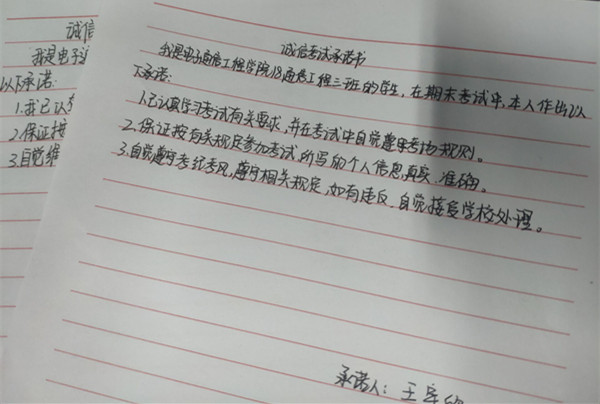 诚信
我是电子
以下承诺:
1.我已认
2.保证按
3.自觉维
诚信考试承诺书
我是电子通信工程学院18通信工程三班的学生,在期末考试中,本人作出以
下承诺:
1.已认真学习考试有关要求,并在考试中自觉遵守考场规则。
2.保证按有关规定参加考试,所写的个人信息真实、准确。
3.自觉遵守考纪考风,遵守相关规定,如有违反,自觉接受学校处理。
承诺人:王